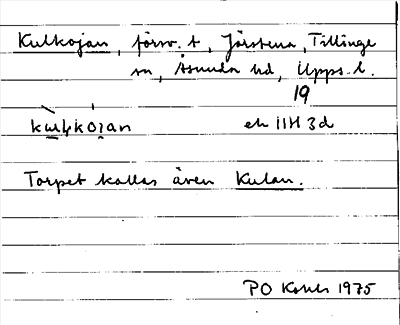 Kulkojan, försv. t, Järstena, Tillinge
sn, Åsunda hd, Upps. l.
19
ek 11H 3d
Torpet kallas även Kulan.
PO 1975